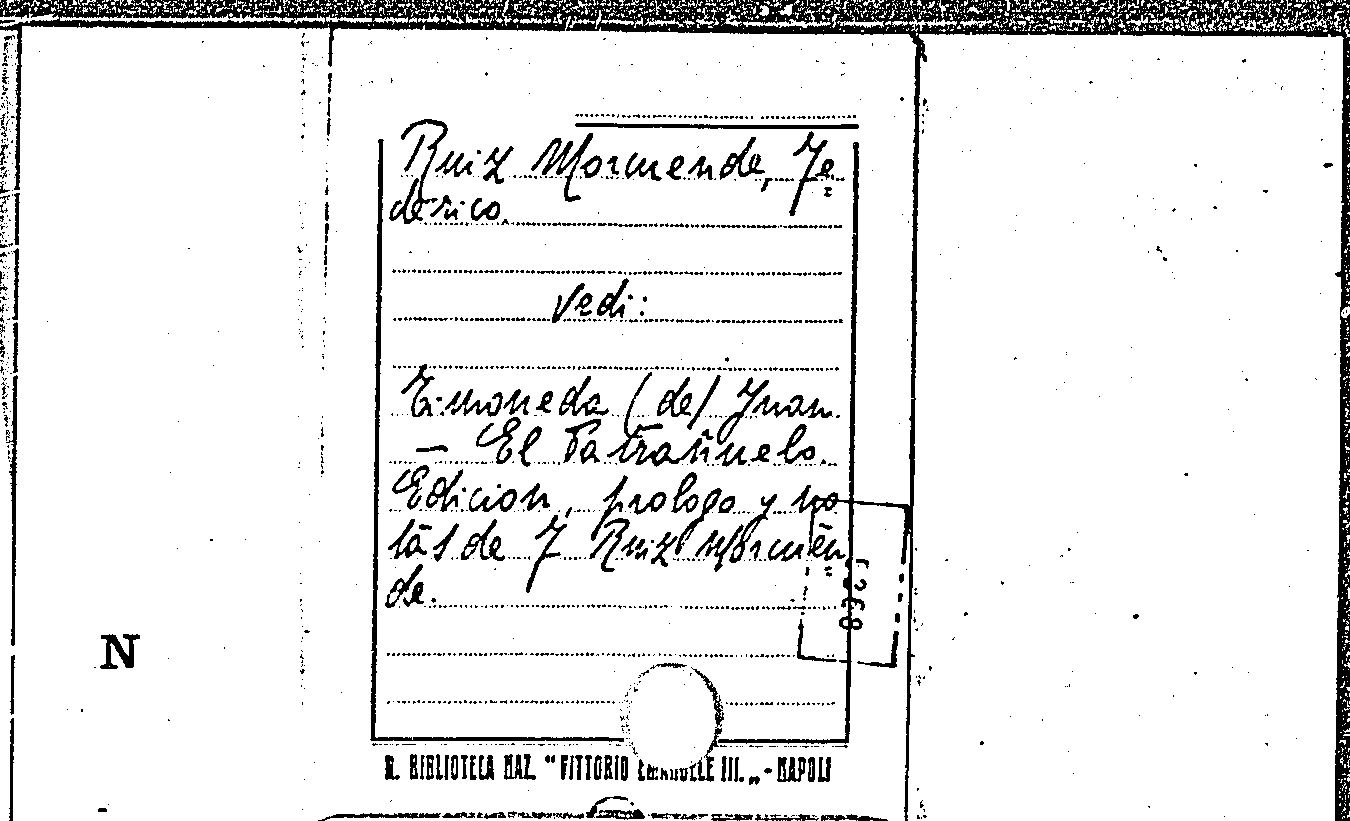 Ruiz Morcuende, Fe=
derico.
vedi:
Timoneda (de) Juan.
— El Patrañuelo.
Edicion, prologo y no
tas de F Ruiz Morcuen=
de.
8363
N
R. BIBLIOTECA NAZ. "VITTORIO EMANUELE III." - NAPOLI